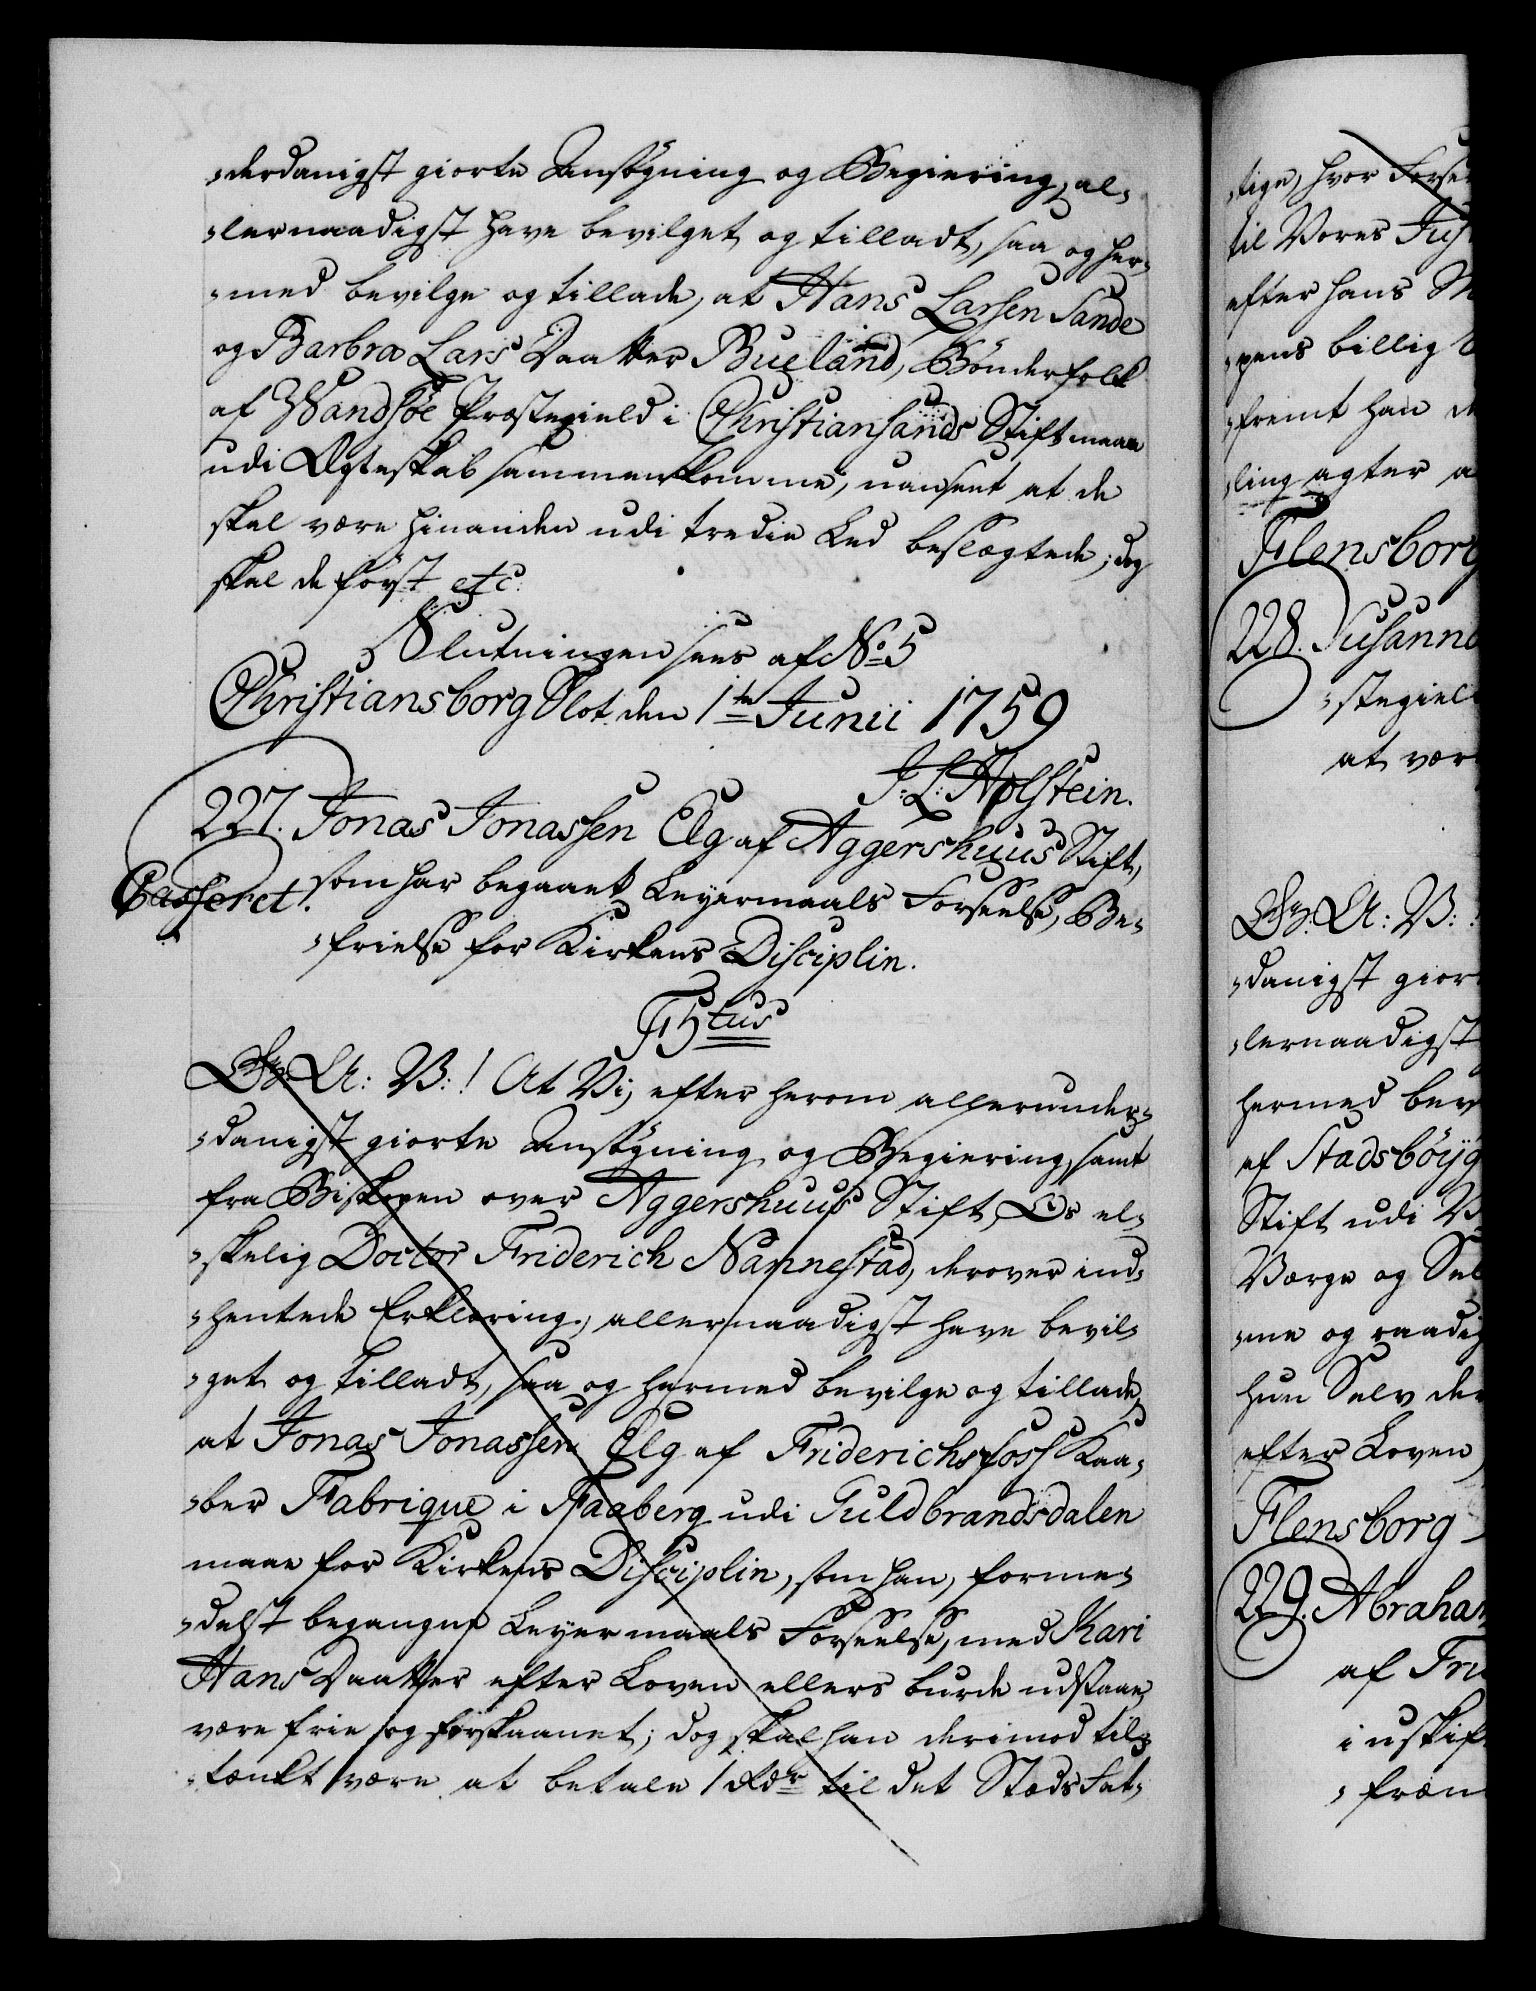 -derdanigst giorte Ansögning og Begiering, al-
-lernaadigst have bevilget og tilladt, saa og her-
-med bevilge og tillade, at Hans Larsen Sande
og Barbra Lars Daatter Bueland, Bönderfolk
af Wandsöe Præstegield i Christiansands Stift maae
udi Ægteskab sammenkomme, uanseet at de
skal være hinanden udi tredie Led beslægtede; dog
skal de först etc.
Slutningen sees af No 5
Christiansborg Slot den 1te Junii 1759
J: L: Holstein.
227. Jonas Jonassen Elg af Aggershuus Stift,
Casseret. som har begaaet Leyermaals Forseelse, Be-
-frielse for Kirkens Disciplin.
F5tus
Gr: A: V: ! At Vi, efter herom allerunder-
-danigst giorte Ansögning og Begiering, samt
fra Biskopen over Aggershuus Stift, Os el-
-skelig Doctor Friderich Nannestad, derover ind-
-hentede Erklæring, allernaadigst have bevil-
-get og tilladt, saa og hermed bevilge og tillade,
at Jonas Jonassen Elg af Friderichsfoss Kaa-
-ber Fabrique i Faaberg udi Guldbrandsdalen
maae for Kirkens Disciplin, som han, forme-
-delst begangne Leyermaals Forseelse, med Kari
Hans Daatter efter Loven ellers burde udstaae,
være frie og forskaanet; dog skal han derimod til-
-tænkt være at betale 1 Rdr til det Stæds Fat-
-tige, hvor Forse
til Vores Jus
efter hans
-pens billig
-fremt han
-ling agter a
Flensborg
228. Susanne
-stegiel
at være
Gr: A: V: !
-danigst gior
-lernaadigst
hermed bev
af Stadsböyg
Stift udi
Værge og
-me og raadig
hun Selv der
efter Loven
Flensborg
229. Abraham
af Fri
i uskif
-fræn